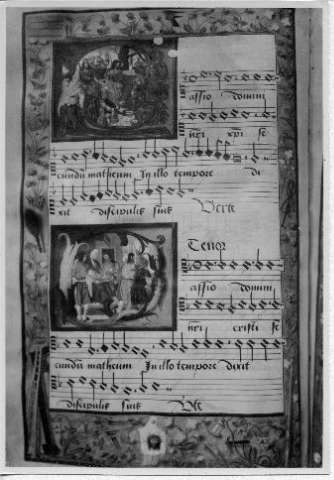 assio domini
nri xpi se
cundu matheum In illo tempore di
xit discipulis suis Verte
Tenor
assio domini
nri cristi se
cundu matheum In illo tempore dixit
discipulis suis Vte